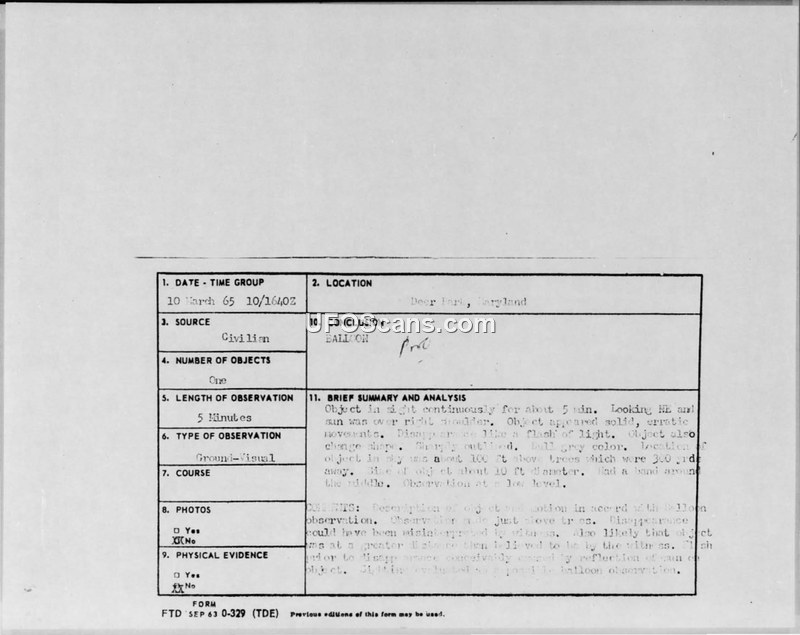 1. DATE - TIME GROUP
10 March 65 10/1640Z
2. LOCATION
Deer Park, Maryland
3. SOURCE
Civilian
10. CONCLUSION
BALLOON
UFOScans.com
4. NUMBER OF OBJECTS
One
5. LENGTH OF OBSERVATION
5 Minutes
11. BRIEF SUMMARY AND ANALYSIS
Object in sight continuously for about 5 min. Looking NE and
sun was over right shoulder. Object appeared solid, erratic
movements. Disappearance like a flash of light. Object also
change shape. Sharply outlined. Dull grey color. Location of
object in sky was about 100 ft above trees which were 300 yrds
away. Size of object about 10 ft diameter. Had a band around
the middle. Observation at a low level.
COMMENTS: Description of object and motion in accord with balloon
observation. Observation made just above trees. Disappearance
could have been misinterpreted by witness. Also likely that object
was at a greater distance than believed to be by the witness. Flash
prior to disappearance conceivably caused by reflection of sun on
object. Sighting evaluated as a possible balloon observation.
6. TYPE OF OBSERVATION
Ground-Visual
7. COURSE
8. PHOTOS
□ Yes
XX No
9. PHYSICAL EVIDENCE
□ Yes
XX No
FORM
FTD SEP 63 0-329 (TDE) Previous editions of this form may be used.